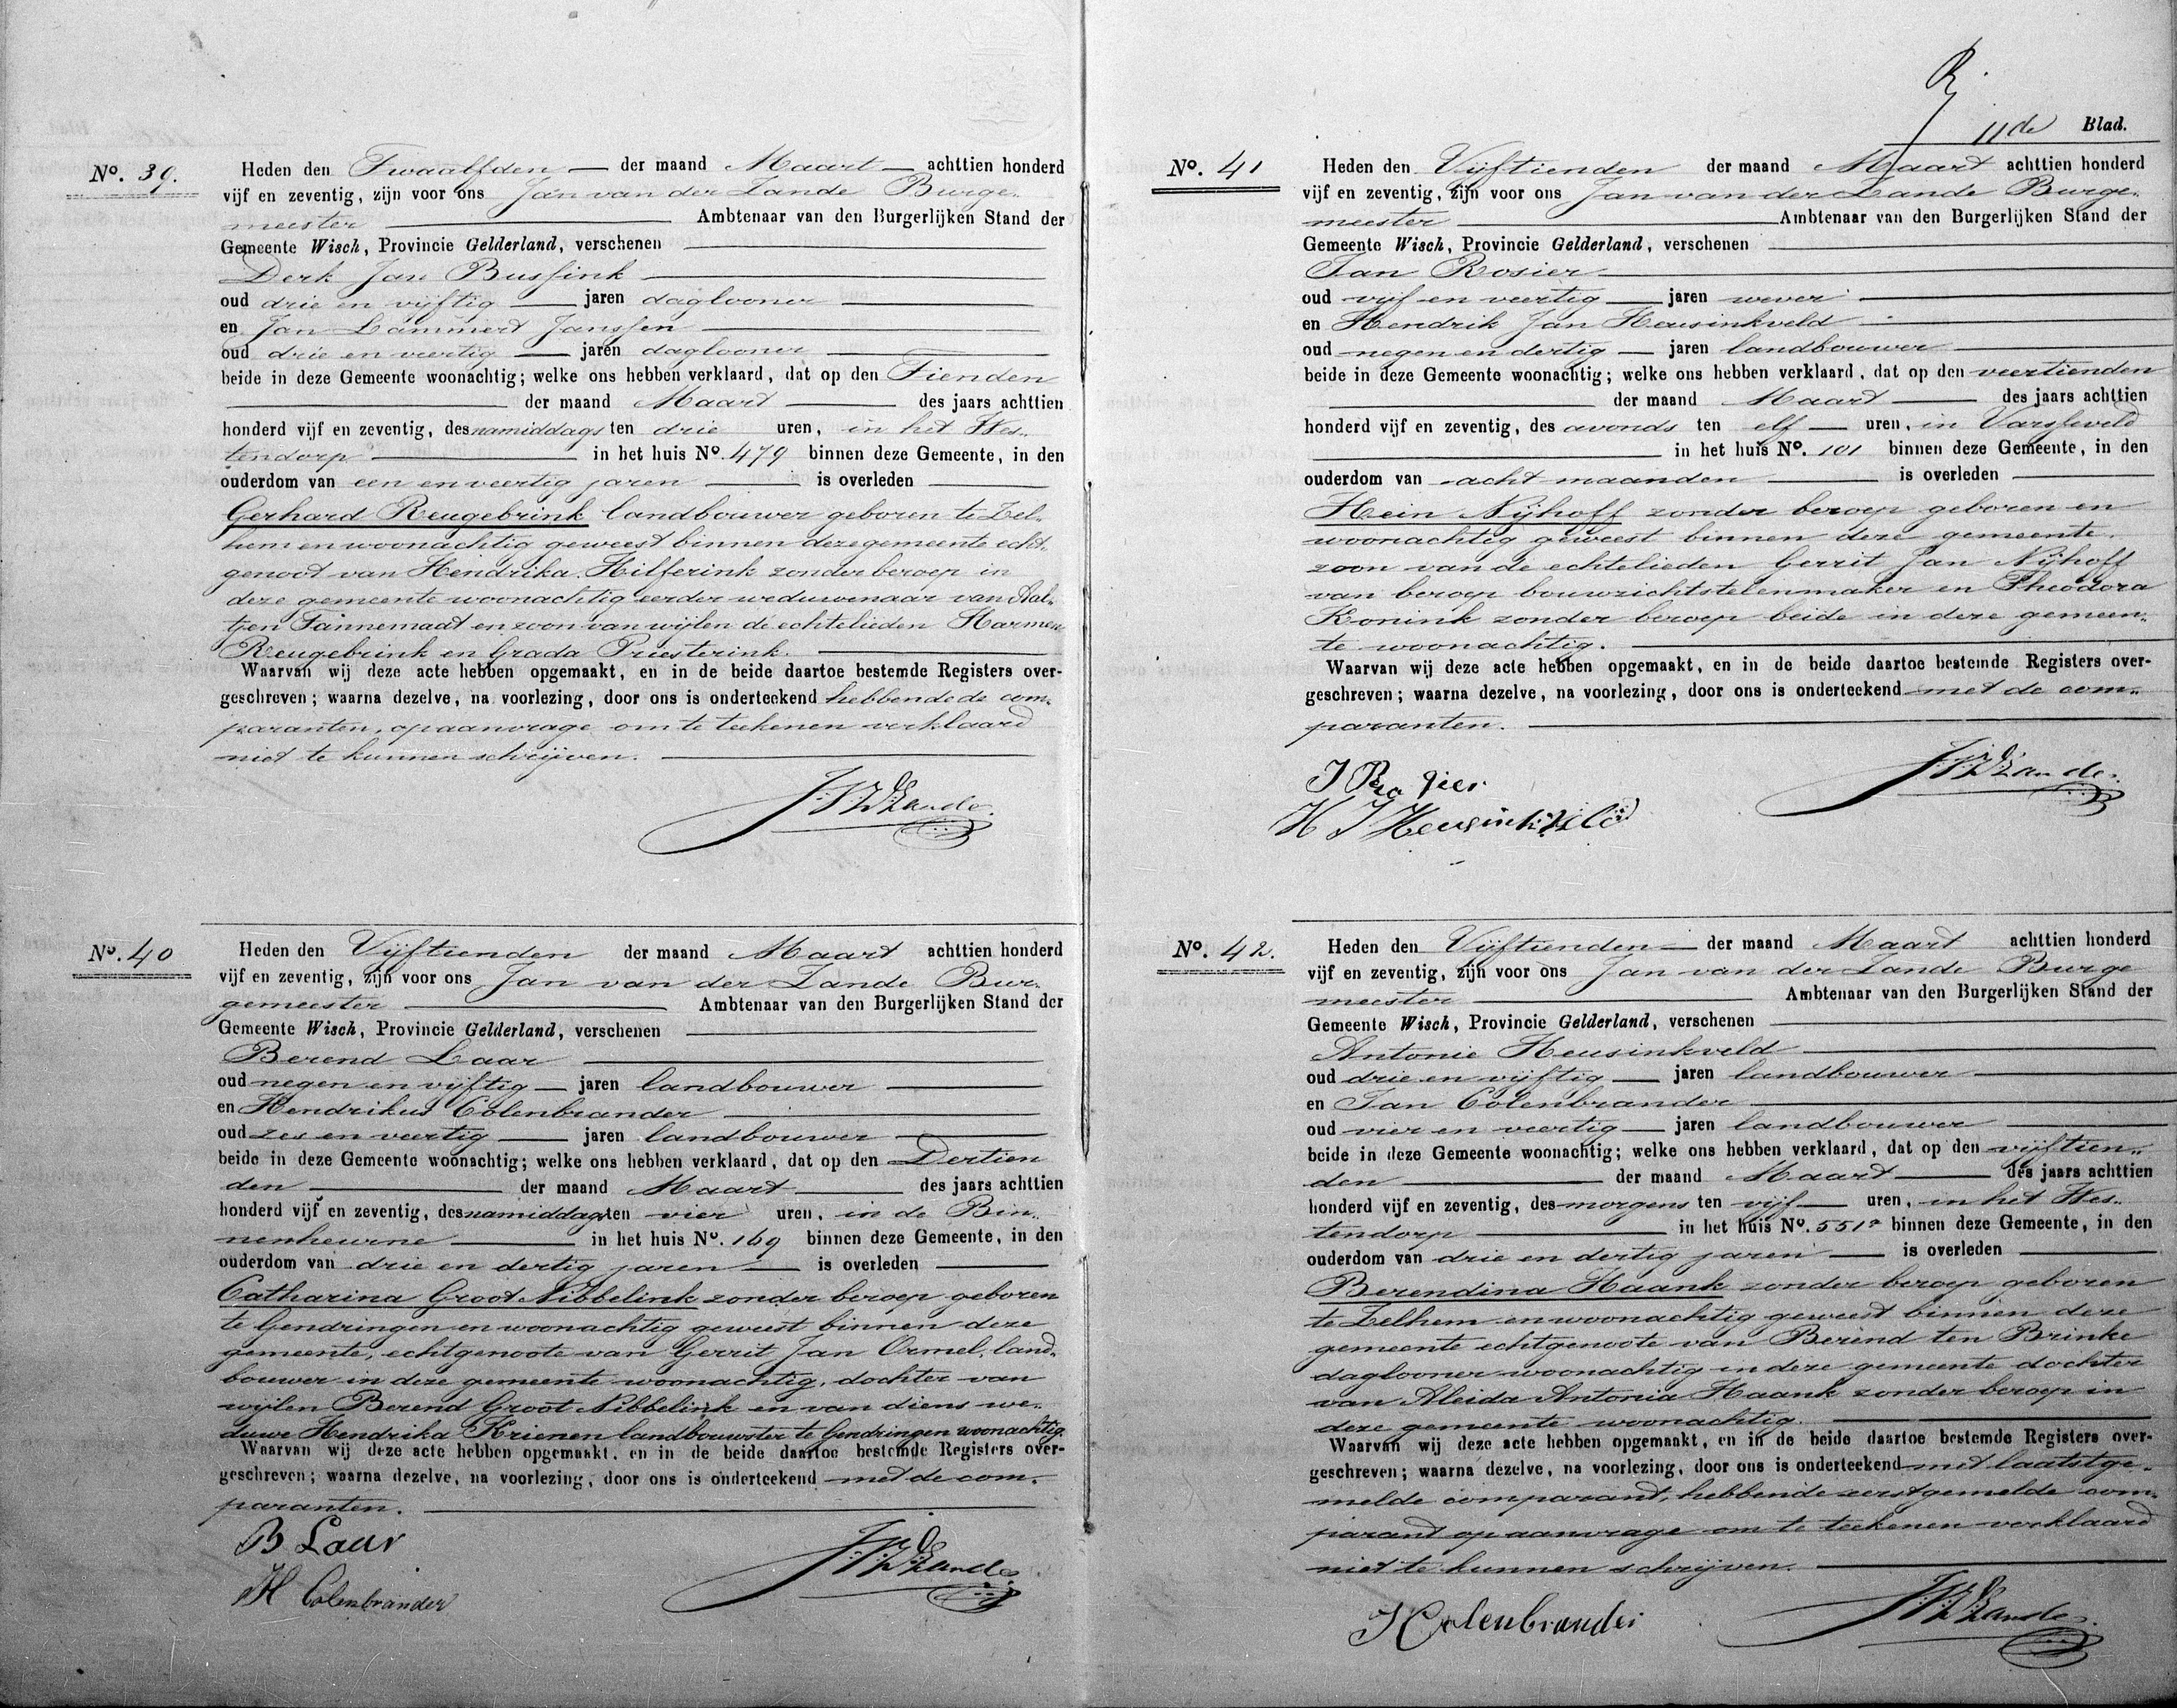 No. 39.
Heden den Twaalfden der maand Maart achttien honderd
vijf en zeventig, zijn voor ons Jan van der Zande Burge-
meester Ambtenaar van den Burgerlijken Stand der
Gemeente Wisch, Provincie Gelderland, verschenen
Derk Jan Bussink
oud drie en vijftig jaren daglooner
en Jan Lammert Janssen
oud drie en veertig jaren daglooner
beide in deze Gemeente woonachtig; welke ons hebben verklaard, dat op den Tienden
der maand Maart des jaars achttien
honderd vijf en zeventig, des namiddags ten drie uren, in het Wes-
tendorp in het huis No. 479 binnen deze Gemeente, in den
ouderdom van een en veertig jaren is overleden
Gerhard Reugebrink landbouwer geboren te Zel-
hem en woonachtig geweest binnen deze gemeente echt-
genoot van Hendrika Hilferink zonder beroep in
deze gemeente woonachtig eerder weduwenaar van Aal-
tjen Tannemaat en zoon van wijlen de echtelieden Harmen
Reugebrink en Grada Priesterink.
Waarvan wij deze acte hebben opgemaakt, en in de beide daartoe bestemde Registers over-
geschreven; waarna dezelve, na voorlezing, door ons is onderteekend hebbende de com-
paranten, op aanvrage om te teekenen verklaard
niet te kunnen schrijven.
J.V.D.Zande.
No. 40
Heden den Vijftienden der maand Maart achttien honderd
vijf en zeventig, zijn voor ons Jan van der Zande Bur-
gemeester Ambtenaar van den Burgerlijken Stand der
Gemeente Wisch, Provincie Gelderland, verschenen
Berend Laar
oud negen en vijftig jaren landbouwer
en Hendrikus Colenbrander
oud zes en veertig jaren landbouwer
beide in deze Gemeente woonachtig; welke ons hebben verklaard, dat op den Dertien
den der maand Maart des jaars achttien
honderd vijf en zeventig, des namiddags ten vier uren, in de Bin-
nenheurne in het huis No. 169 binnen deze Gemeente, in den
ouderdom van drie en dertig jaren is overleden
Catharina Groot Nibbelink zonder beroep geboren
te Gendringen en woonachtig geweest binnen deze
gemeente, echtgenoote van Gerrit Jan Ormel, land-
bouwer in deze gemeente woonachtig, dochter van
wijlen Berend Groot Nibbelink en van diens we-
duwe Hendrika Krienen landbouwster te Gendringen woonachtig.
Waarvan wij deze acte hebben opgemaakt, en in de beide daartoe bestemde Registers over-
geschreven; waarna dezelve, na voorlezing, door ons is onderteekend met de com-
paranten.
B Laar
H Colenbrander
J.V.D.Zande
11de Blad.
No. 41
Heden den Vijftienden der maand Maart achttien honderd
vijf en zeventig, zijn voor ons Jan van der Zande Burge-
meester Ambtenaar van den Burgerlijken Stand der
Gemeente Wisch, Provincie Gelderland, verschenen
Jan Rosier
oud vijf en veertig jaren wever
en Hendrik Jan Heusinkveld
oud negen en dertig jaren landbouwer
beide in deze Gemeente woonachtig; welke ons hebben verklaard, dat op den veertienden
der maand Maart des jaars achttien
honderd vijf en zeventig, des avonds ten elf uren, in Varsseveld
in het huis No. 101 binnen deze Gemeente, in den
ouderdom van acht maanden is overleden
Hein Nijhoff zonder beroep geboren en
woonachtig geweest binnen deze gemeente.
zoon van de echtelieden Gerrit Jan Nijhoff
van beroep bouwzichtstelenmaker en Theodora
Konink zonder beroep beide in deze gemeen-
te woonachtig.
Waarvan wij deze acte hebben opgemaakt, en in de beide daartoe bestemde Registers over-
geschreven; waarna dezelve, na voorlezing, door ons is onderteekend met de com-
paranten.
J Rosier
H J Heusinkveld
J.V.D.Zande.
No. 42.
Heden den Vijftienden der maand Maart achttien honderd
vijf en zeventig, zijn voor ons Jan van der Zande Burge
meester Ambtenaar van den Burgerlijken Stand der
Gemeente Wisch, Provincie Gelderland, verschenen
Antonie Heusinkveld
oud drie en vijftig jaren landbouwer
en Jan Colenbrander
oud vier en veertig jaren landbouwer
beide in deze Gemeente woonachtig; welke ons hebben verklaard, dat op den vijftien-
den der maand Maart des jaars achttien
honderd vijf en zeventig, des morgens ten vijf uren, in het Wes-
tendorp in het huis No. 551a binnen deze Gemeente, in den
ouderdom van drie en dertig jaren is overleden
Berendina Haank zonder beroep geboren
te Zelhem en woonachtig geweest binnen deze
gemeente echtgenoote van Berend ten Brinke
daglooner woonachtig in deze gemeente dochter
van Aleida Antonia Haank zonder beroep in
deze gemeente woonachtig.
Waarvan wij deze acte hebben opgemaakt, en in de beide daartoe bestemde Registers over-
geschreven; waarna dezelve, na voorlezing, door ons is onderteekend met laatstge-
melde comparant, hebbende eerstgemelde com-
parant op aanvrage om te teekenen verklaard
niet te kunnen schrijven.
J Colenbrander
J.V.D.Zande.